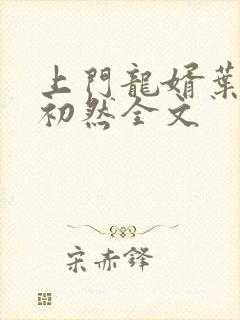 上門龍婿葉
初然全文
宋赤鋒